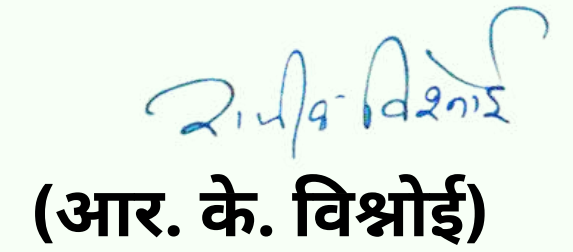 राजीव विश्नोई
(आर. के. विश्नोई)